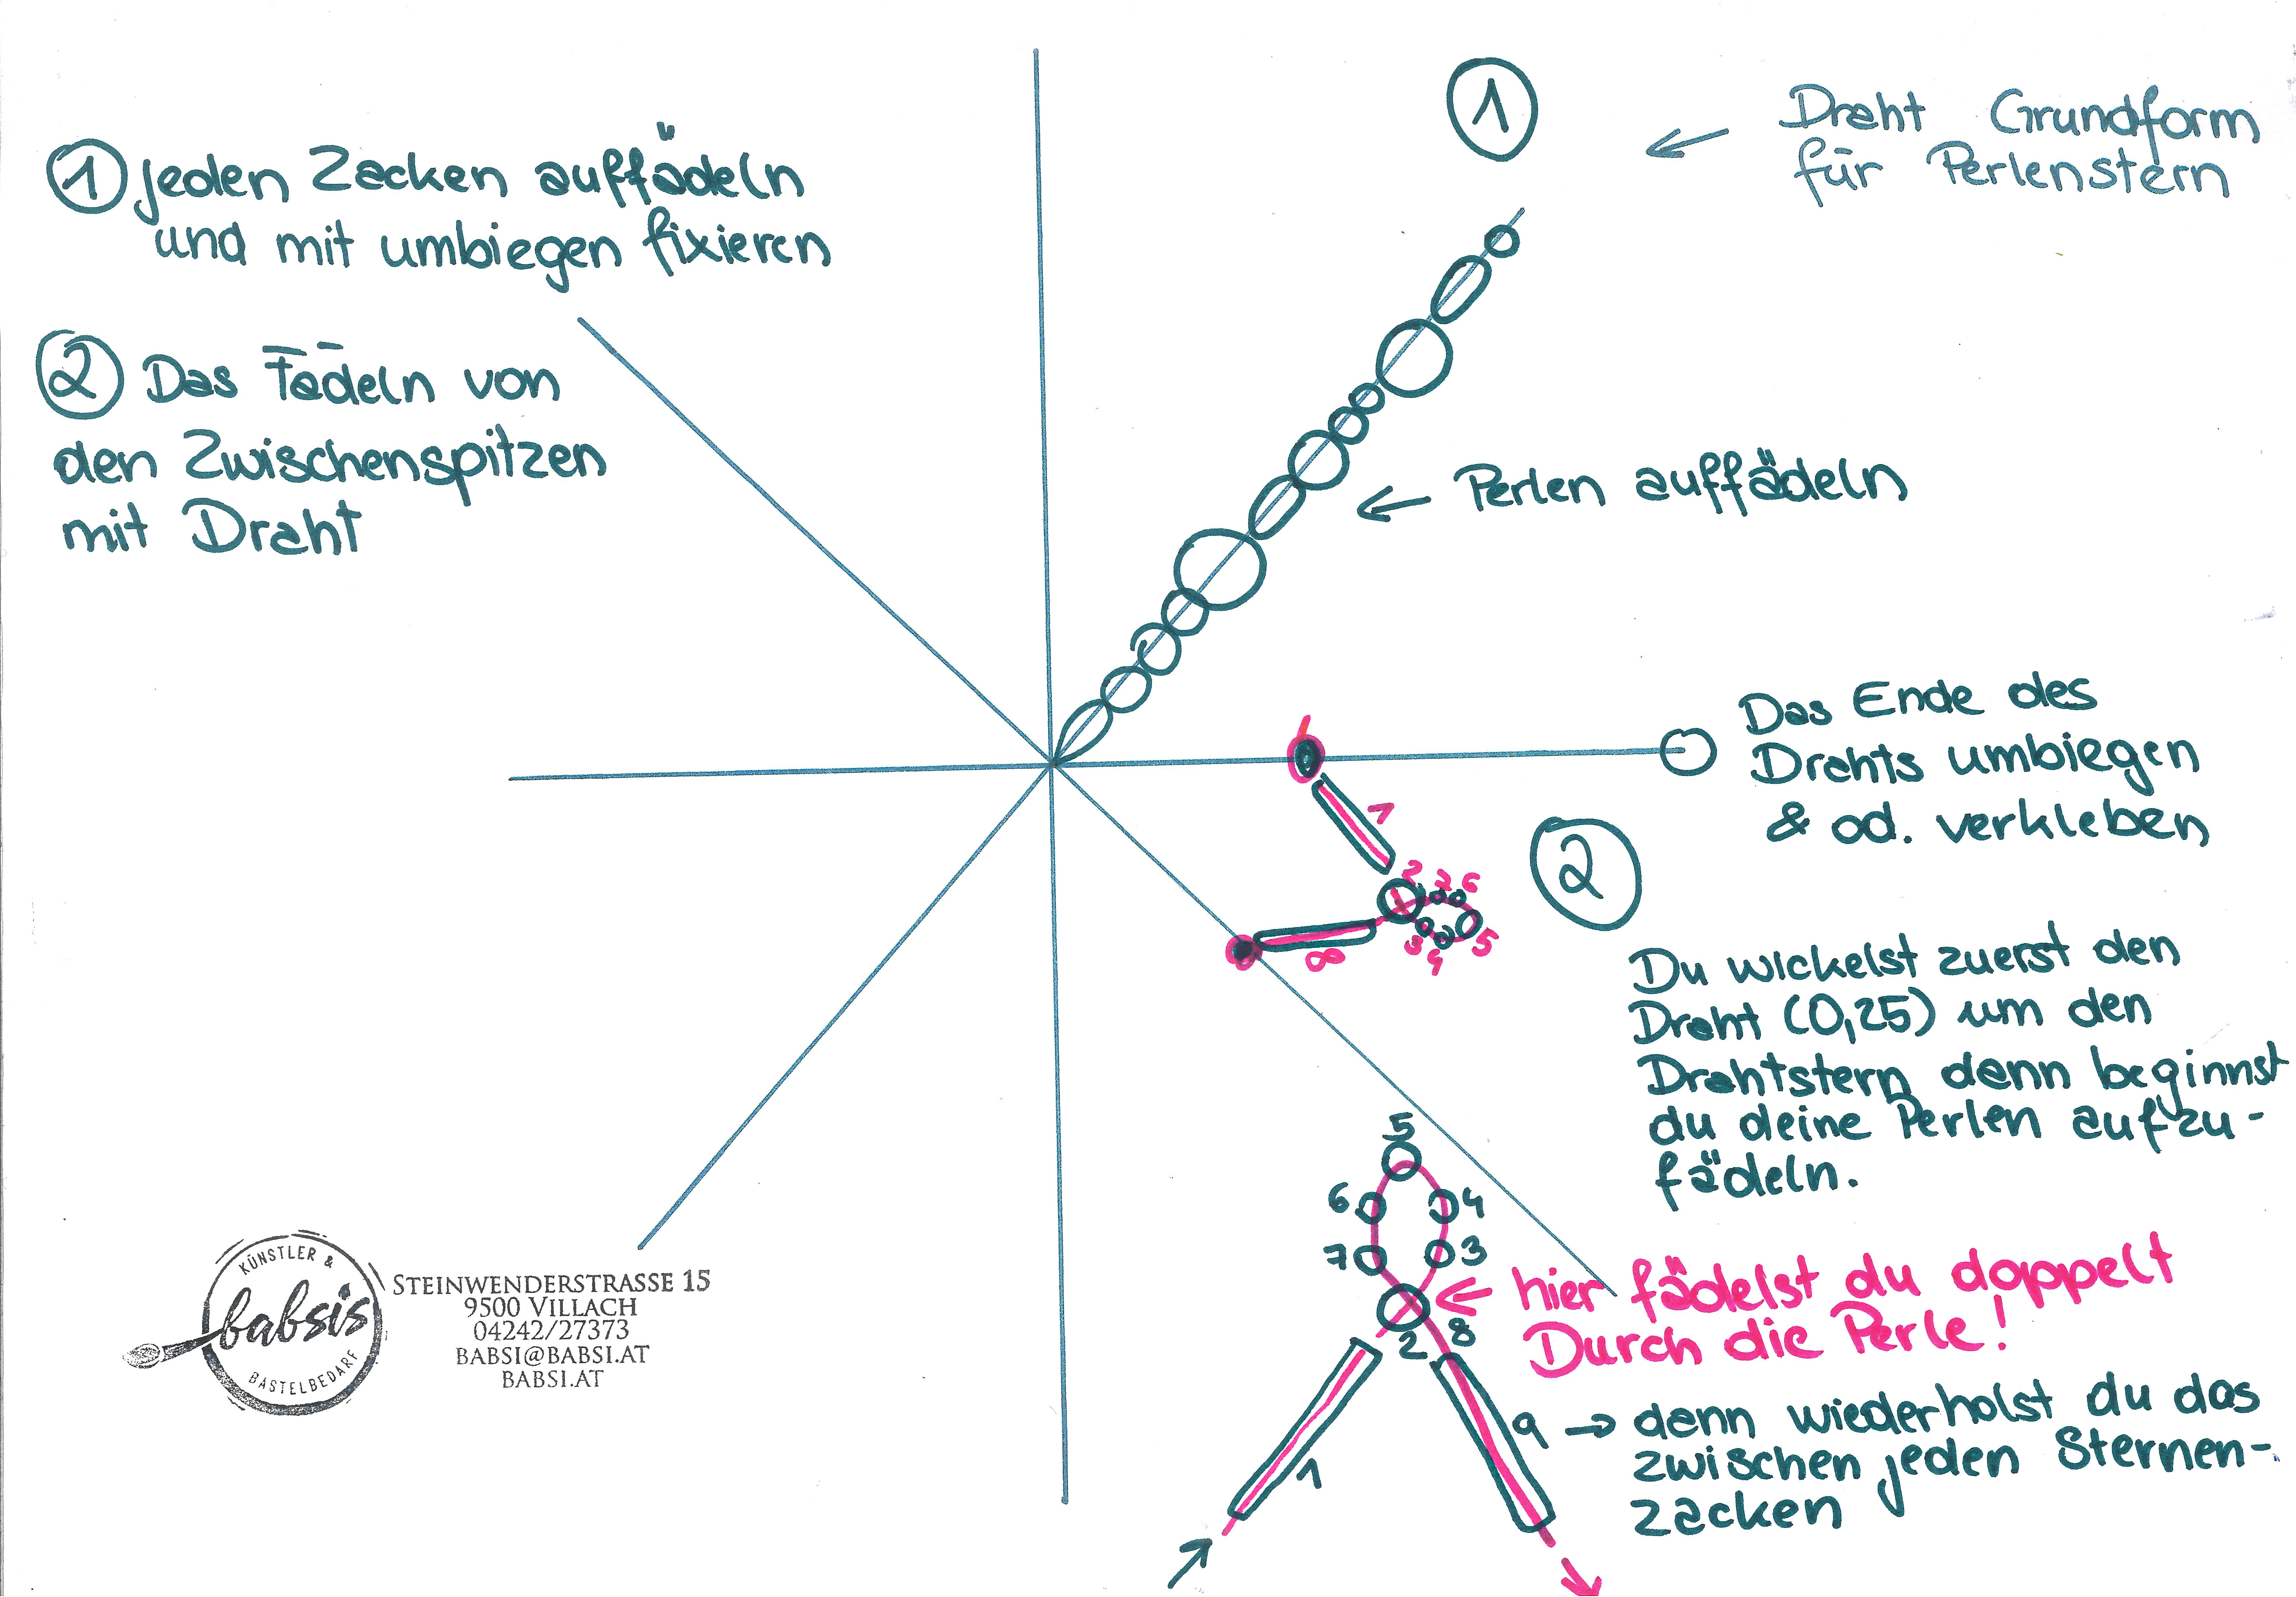 ① jeden Zacken auffädeln
und mit umbiegen fixieren
② Das Fädeln von
den Zwischenspitzen
mit Draht
①
← Draht Grundform
für Perlenstern
← Perlen auffädeln
Das Ende des
Drahts umbiegen
& od. verkleben
1
2 7 6
3 4 5
8
②
Du wickelst zuerst den
Draht (0,25) um den
Drahtstern dann beginnst
du deine Perlen aufzu-
fädeln.
5
6 4
7 3
2 8
← hier fädelst du doppelt
Durch die Perle!
1
9 → dann wiederholst du das
zwischen jeden Sternen-
zacken
KÜNSTLER &
babsis
BASTELBEDARF
STEINWENDERSTRASSE 15
9500 VILLACH
04242/27373
BABSI@BABSI.AT
BABSI.AT